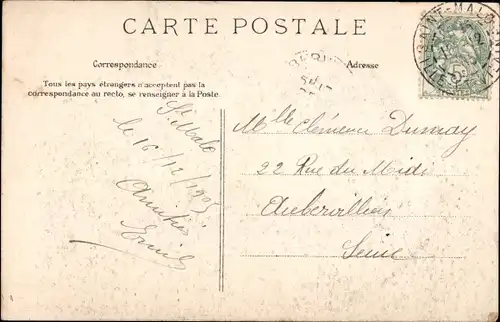 CARTE POSTALE
Correspondance
Adresse
Tous les pays étrangers n'acceptent pas la
correspondance au recto, se renseigner à la Poste.
St Malo
le 16/12/1905
Amitiés
Mlle Clémence Dumay
22 Rue du Midi
Aubervilliers
Seine
SAINT-MALO
5c